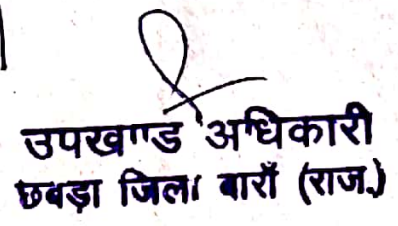 उपखण्ड अधिकारी
छबड़ा जिला बाराँ (राज.)